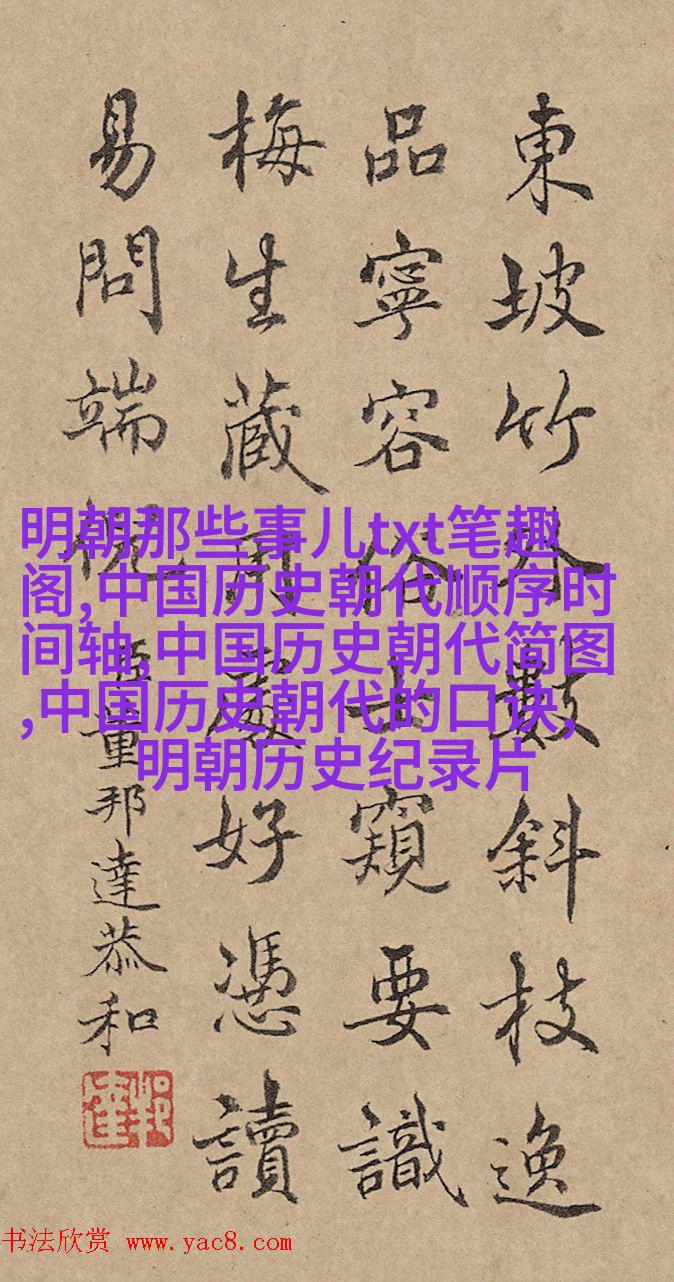 東坡竹外數斜枝逸
品寧容俗士窺要識
梅生藏用處好憑讀
易問端倪臣董邦達恭和
明朝那些事儿txt笔趣
阁,中国历史朝代顺序时
间轴,中国历史朝代简图
,中国历史朝代的口诀,
明朝历史纪录片
书法欣赏 www.yac8.com